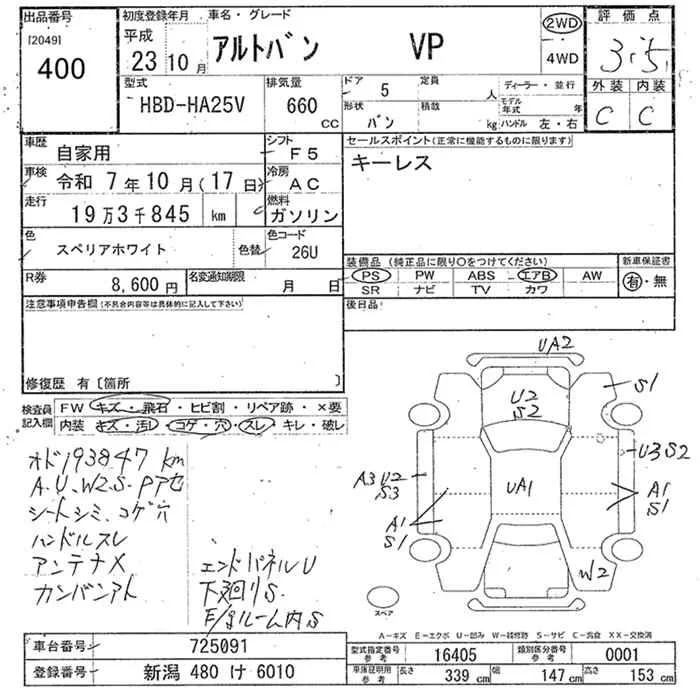 出品番号
[2049]
400
初度登録年月
平成
23年10月
車名・グレード
アルトバン VP
2WD
4WD
評価点
3.5
外装 内装
C C
型式
HBD-HA25V
排気量
660
cc
ドア 5
定員 人
形状 バン
積載 kg
ディーラー・並行
モデル年式 年
ハンドル 左・右
車歴
自家用
シフト
F5
車検
令和 7年10月(17日)
冷房
AC
走行
19万3千845 km
燃料
ガソリン
色
スペリアホワイト
色替
色コード
26U
R券
8,600円
名変通知期限 月 日
注意事項申告欄(不具合内容等は具体的に記入して下さい)
修復歴 有〔箇所
セールスポイント(正常に機能するものに限ります)
キーレス
装備品(純正品に限り○をつけてください)
PS PW ABS エアB AW
SR ナビ TV カワ
新車保証書
有・無
後日品
検査員記入欄
FW キズ・飛石・ヒビ割・リペア跡・×要
内装 キズ・汚レ・コゲ・穴・スレ・キレ・破レ
オド193847km
A.U.W2.S.Pアセ
シートシミ.コゲ穴
ハンドルスレ
アンテナX
カンバンアト
エンドパネルU
下廻りS.
E/gルーム内S
UA2
U2
S2
S1
U3 S2
A3 U2
S3
UA1
A1
S1
A1
S1
W2
スペア
A−キズ E−エクボ U−凹み W−補修跡 S−サビ C−腐食 XX−交換済
車台番号 725091
登録番号 新潟 480 け 6010
型式指定番号 参考 16405
類別区分番号 参考 0001
車庫証明用 参考 長さ 339cm 幅 147cm 高さ 153cm